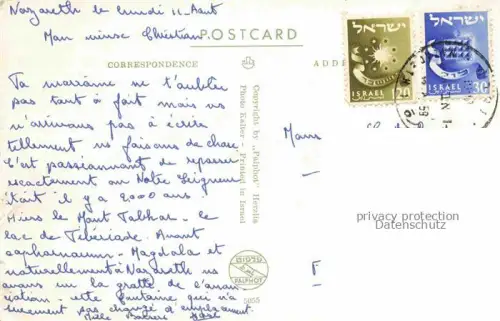 Nazareth le lundi 11 Août
Mon mince Christian
POSTCARD
CORRESPONDENCE
ADDRE
ישראל
ISRAEL
120
ישראל
ISRAEL
30
Ta marraine ne t'oublie
pas tout à fait mais ns
n'arrivons pas à écrire
tellement ns faisons de chose
C'est passionnant de repasser
exactement où Notre Seigneur
était il y a 2000 ans.
Hier le Mont Thabor - le
lac de Tibériade. Avant
capharnaum - Magdala et
naturellement à Nazareth ns
avons vu la grotte de l'annon
ciation - cette fontaine qui n'a
surement pas changé d'emplacement.
Mille Baisers
Copyright by "Palphot" Herzlia
Photo Kalter - Printed in Israel
Mons
פלפוט
PALPHOT
5655
F
privacy protection
Datenschutz